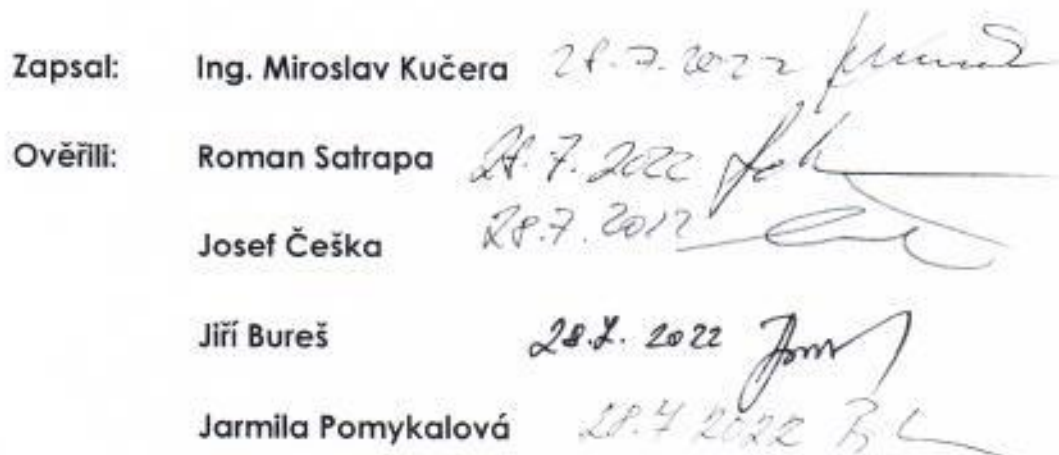 Zapsal: Ing. Miroslav Kučera 28.7.2022
Ověřili: Roman Satrapa 28.7.2022
Josef Češka 28.7.2022
Jiří Bureš 28.7.2022
Jarmila Pomykalová 28.7 2022